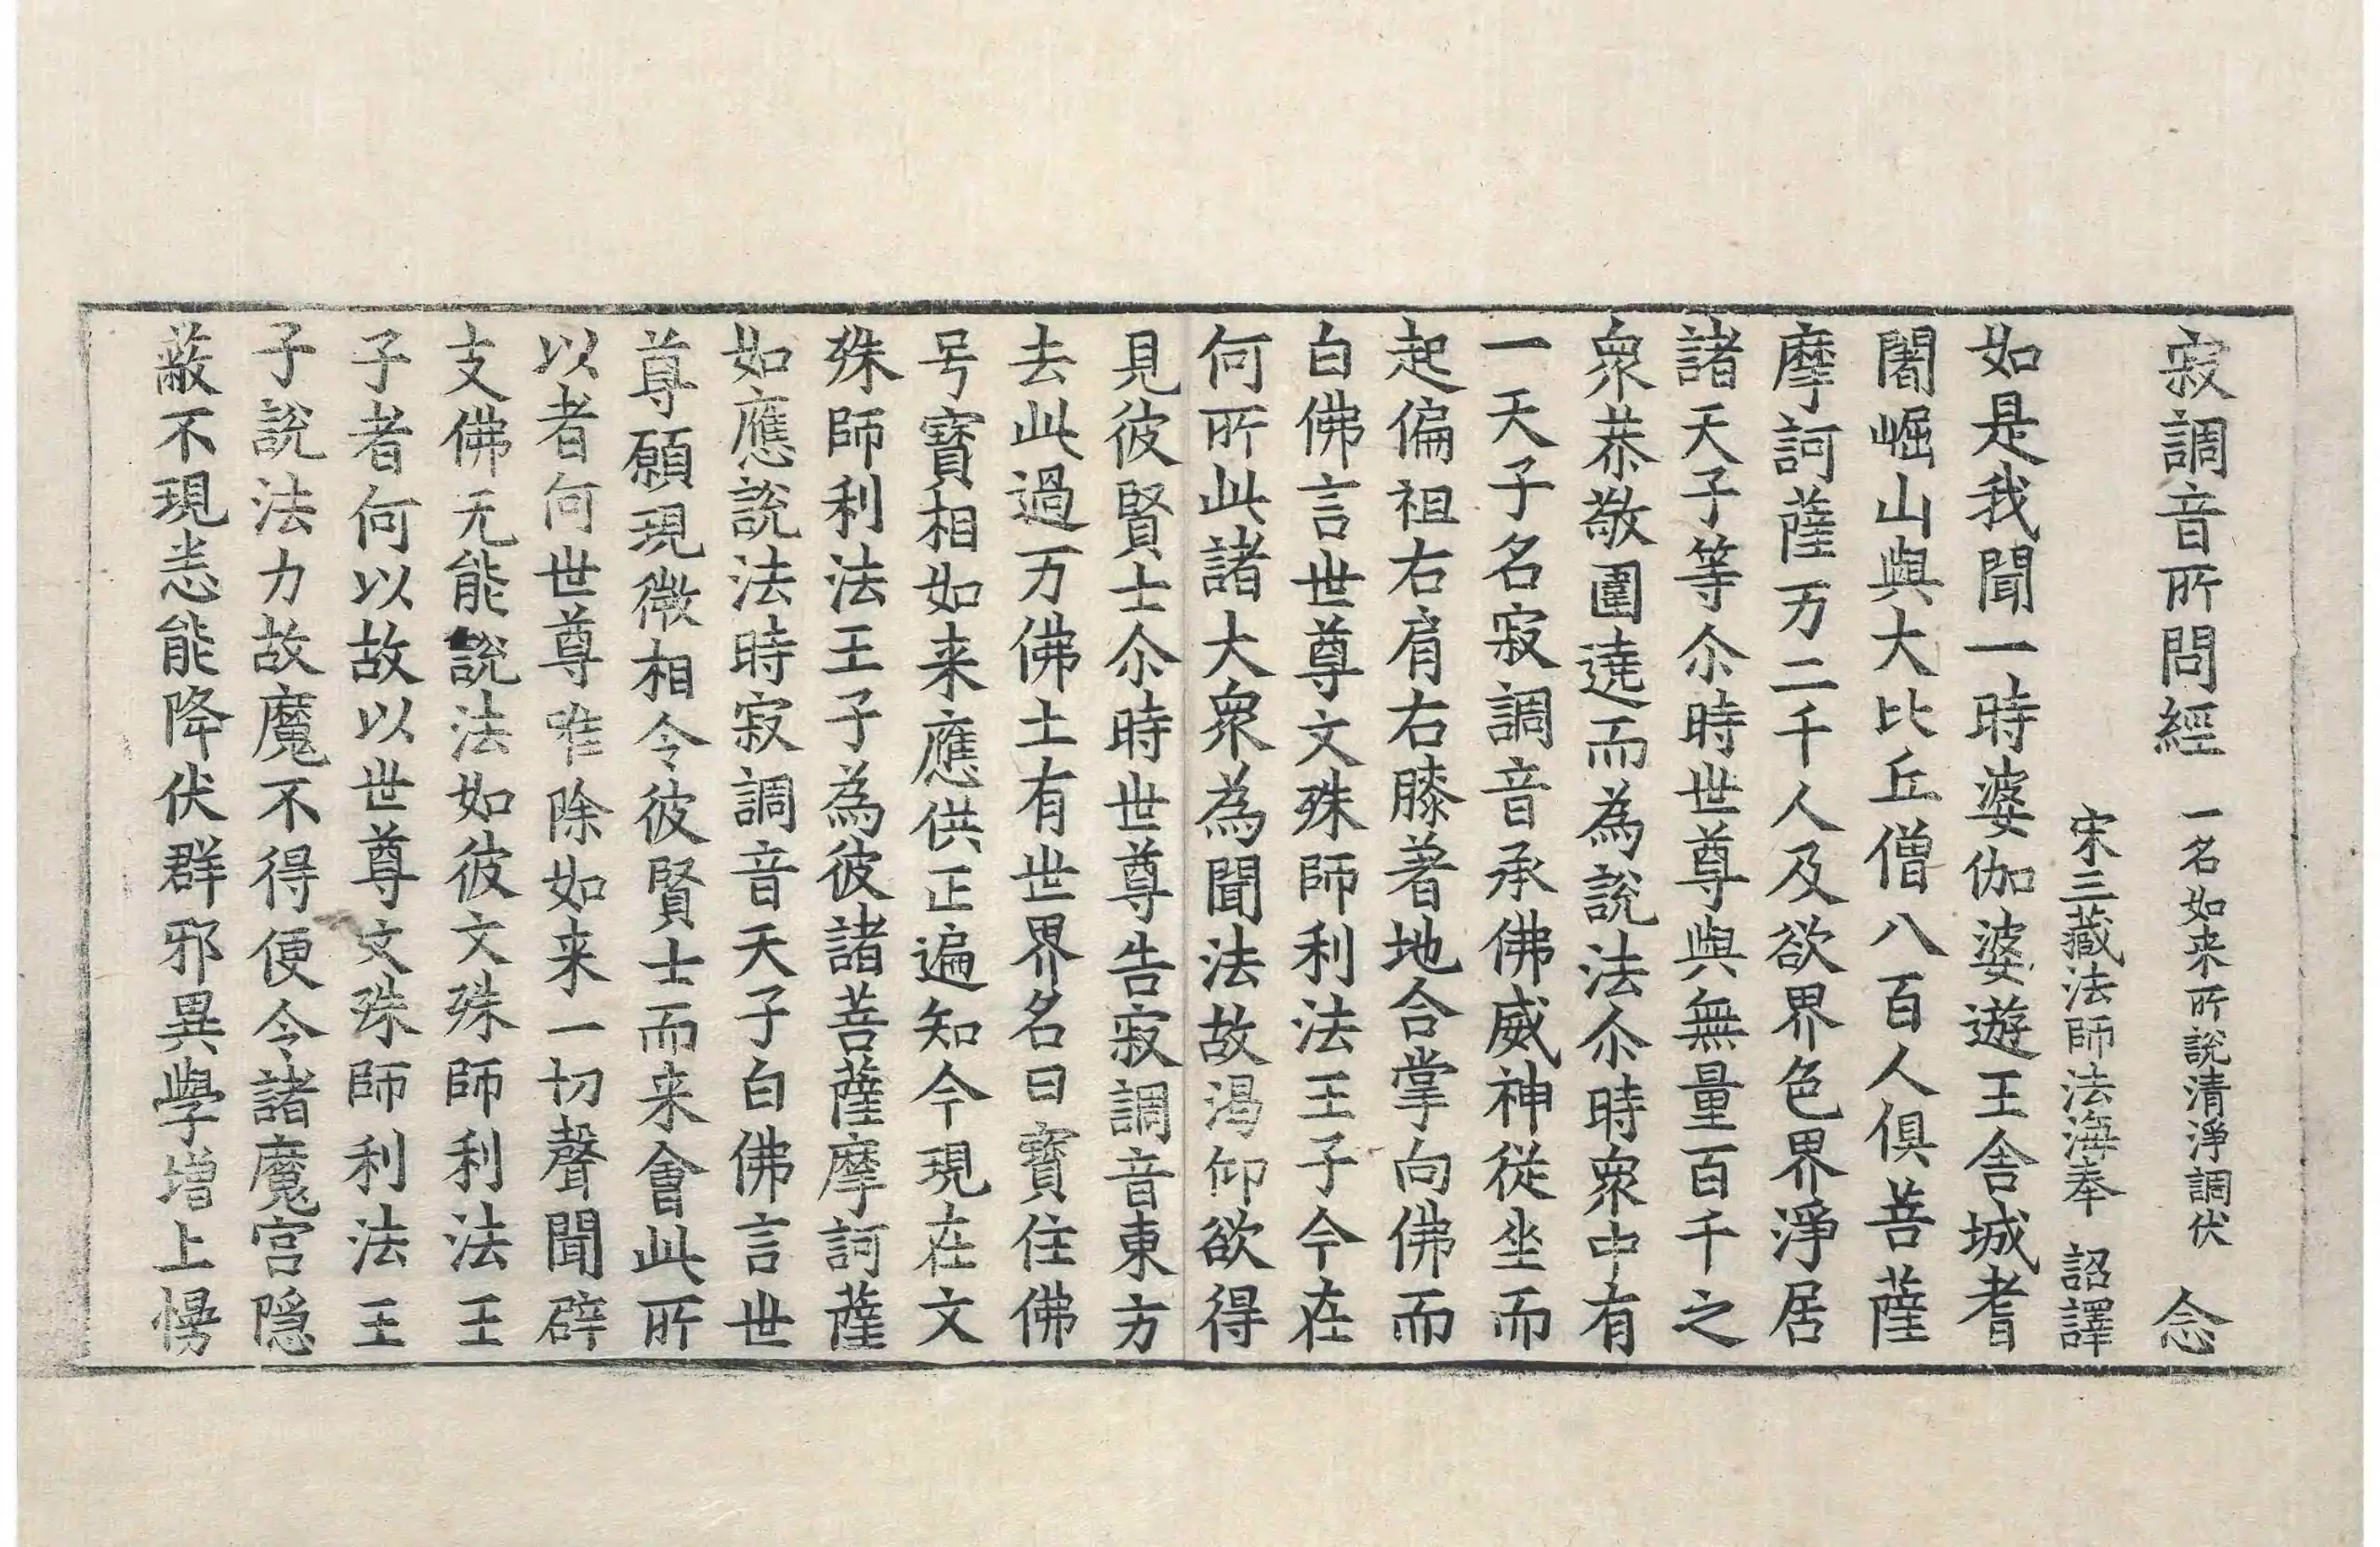 寂調音所問經 一名如来所說清淨調伏 念
宋三藏法師法海奉 詔譯
如是我聞一時婆伽婆遊王舍城耆
闍崛山與大比丘僧八百人俱菩薩
摩訶薩万二千人及欲界色界淨居
諸天子等尒時世尊與無量百千之
衆恭敬圍遶而為說法尒時衆中有
一天子名寂調音承佛威神從坐而
起偏袒右肩右膝著地合掌向佛而
白佛言世尊文殊師利法王子今在
何所此諸大衆為聞法故渴仰欲得
見彼賢士尒時世尊告寂調音東方
去此過万佛土有世界名曰寶住佛
号寶相如来應供正遍知今現在文
殊師利法王子為彼諸菩薩摩訶薩
如應說法時寂調音天子白佛言世
尊願現微相令彼賢士而来會此所
以者何世尊唯除如来一切聲聞辟
支佛无能說法如彼文殊師利法王
子者何以故以世尊文殊師利法王
子說法力故魔不得便令諸魔宮隱
蔽不現恚能降伏群邪異學增上慢